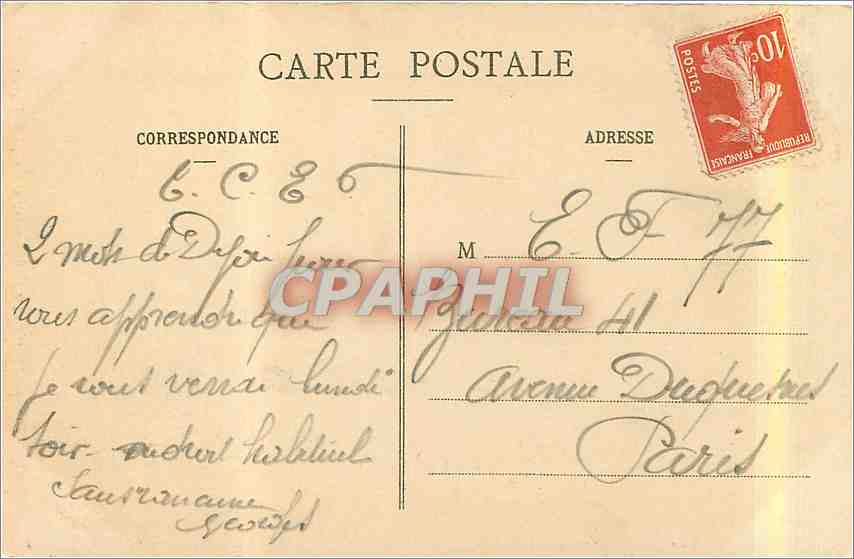 CARTE POSTALE
CORRESPONDANCE
2 mots de Dijon pour
vous apprendre que
je vous verrai lundi
soir - endroit habituel
Georges
ADRESSE
M E. F 77
Bureau 41
Avenue Duquesne
Paris
10c
POSTES
REPUBLIQUE FRANÇAISE
CPAPHIL